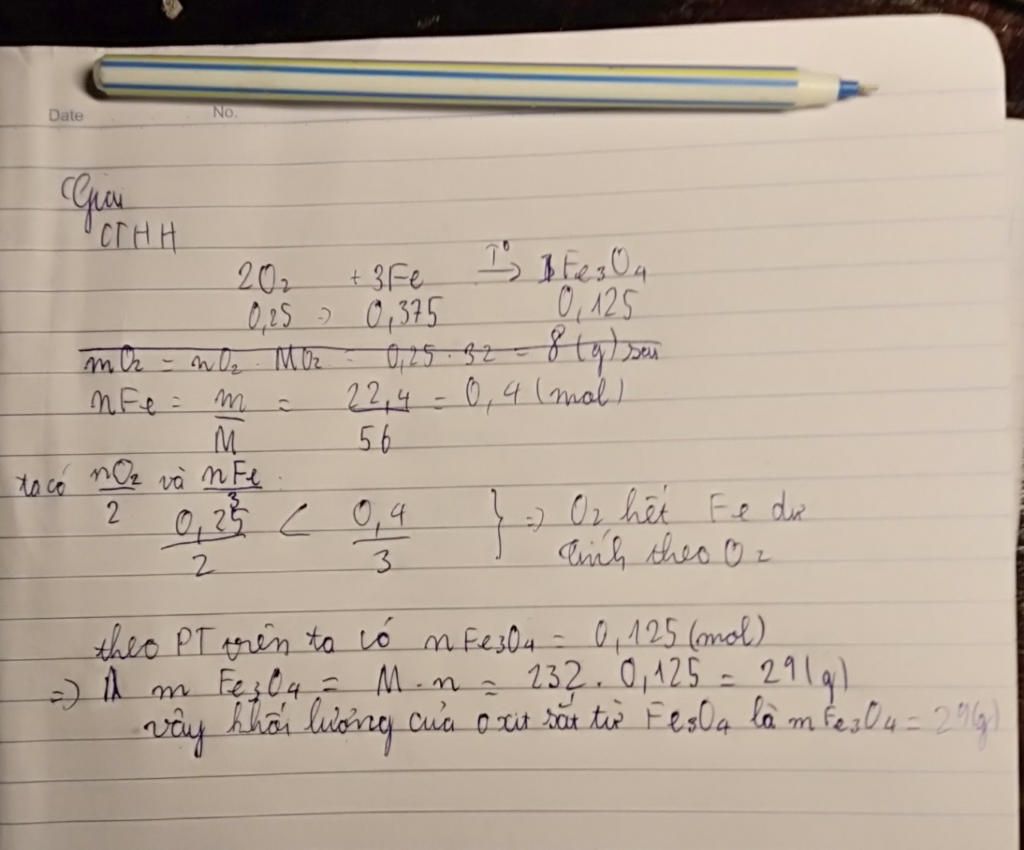 Date No.
Giải
CTHH
2O₂ + 3Fe T° → 1Fe₃O₄
0,25 → 0,375 0,125
mO₂ = nO₂ . MO₂ = 0,25 . 32 = 8 (g) sai
nFe = m/M = 22,4/56 = 0,4 (mol)
ta có nO₂/2 và nFe/3
0,25/2 < 0,4/3 } => O₂ hết Fe dư
tính theo O₂
theo PT trên ta có nFe₃O₄ = 0,125 (mol)
=> m Fe₃O₄ = M . n = 232 . 0,125 = 29 (g)
vậy khối lượng của oxit sắt từ Fe₃O₄ là mFe₃O₄ = 29(g)